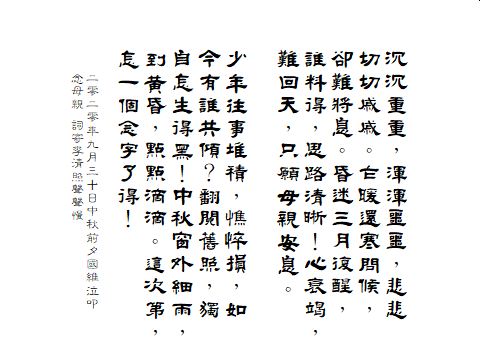 沉沉重重，渾渾噩噩，悲悲
切切戚戚。乍暖還寒問候，
卻難將息。昏迷三月復醒，
誰料得，思路清晰！心衰竭，
難回天，只願母親安息。
少年往事堆積，憔悴損，如
今有誰共傾？翻閱舊照，獨
自怎生得黑！中秋窗外細雨，
到黃昏，點點滴滴。這次第，
怎一個念字了得！
二零二零年九月三十日中秋前夕國維泣叩
念母親 詞寄李清照聲聲慢